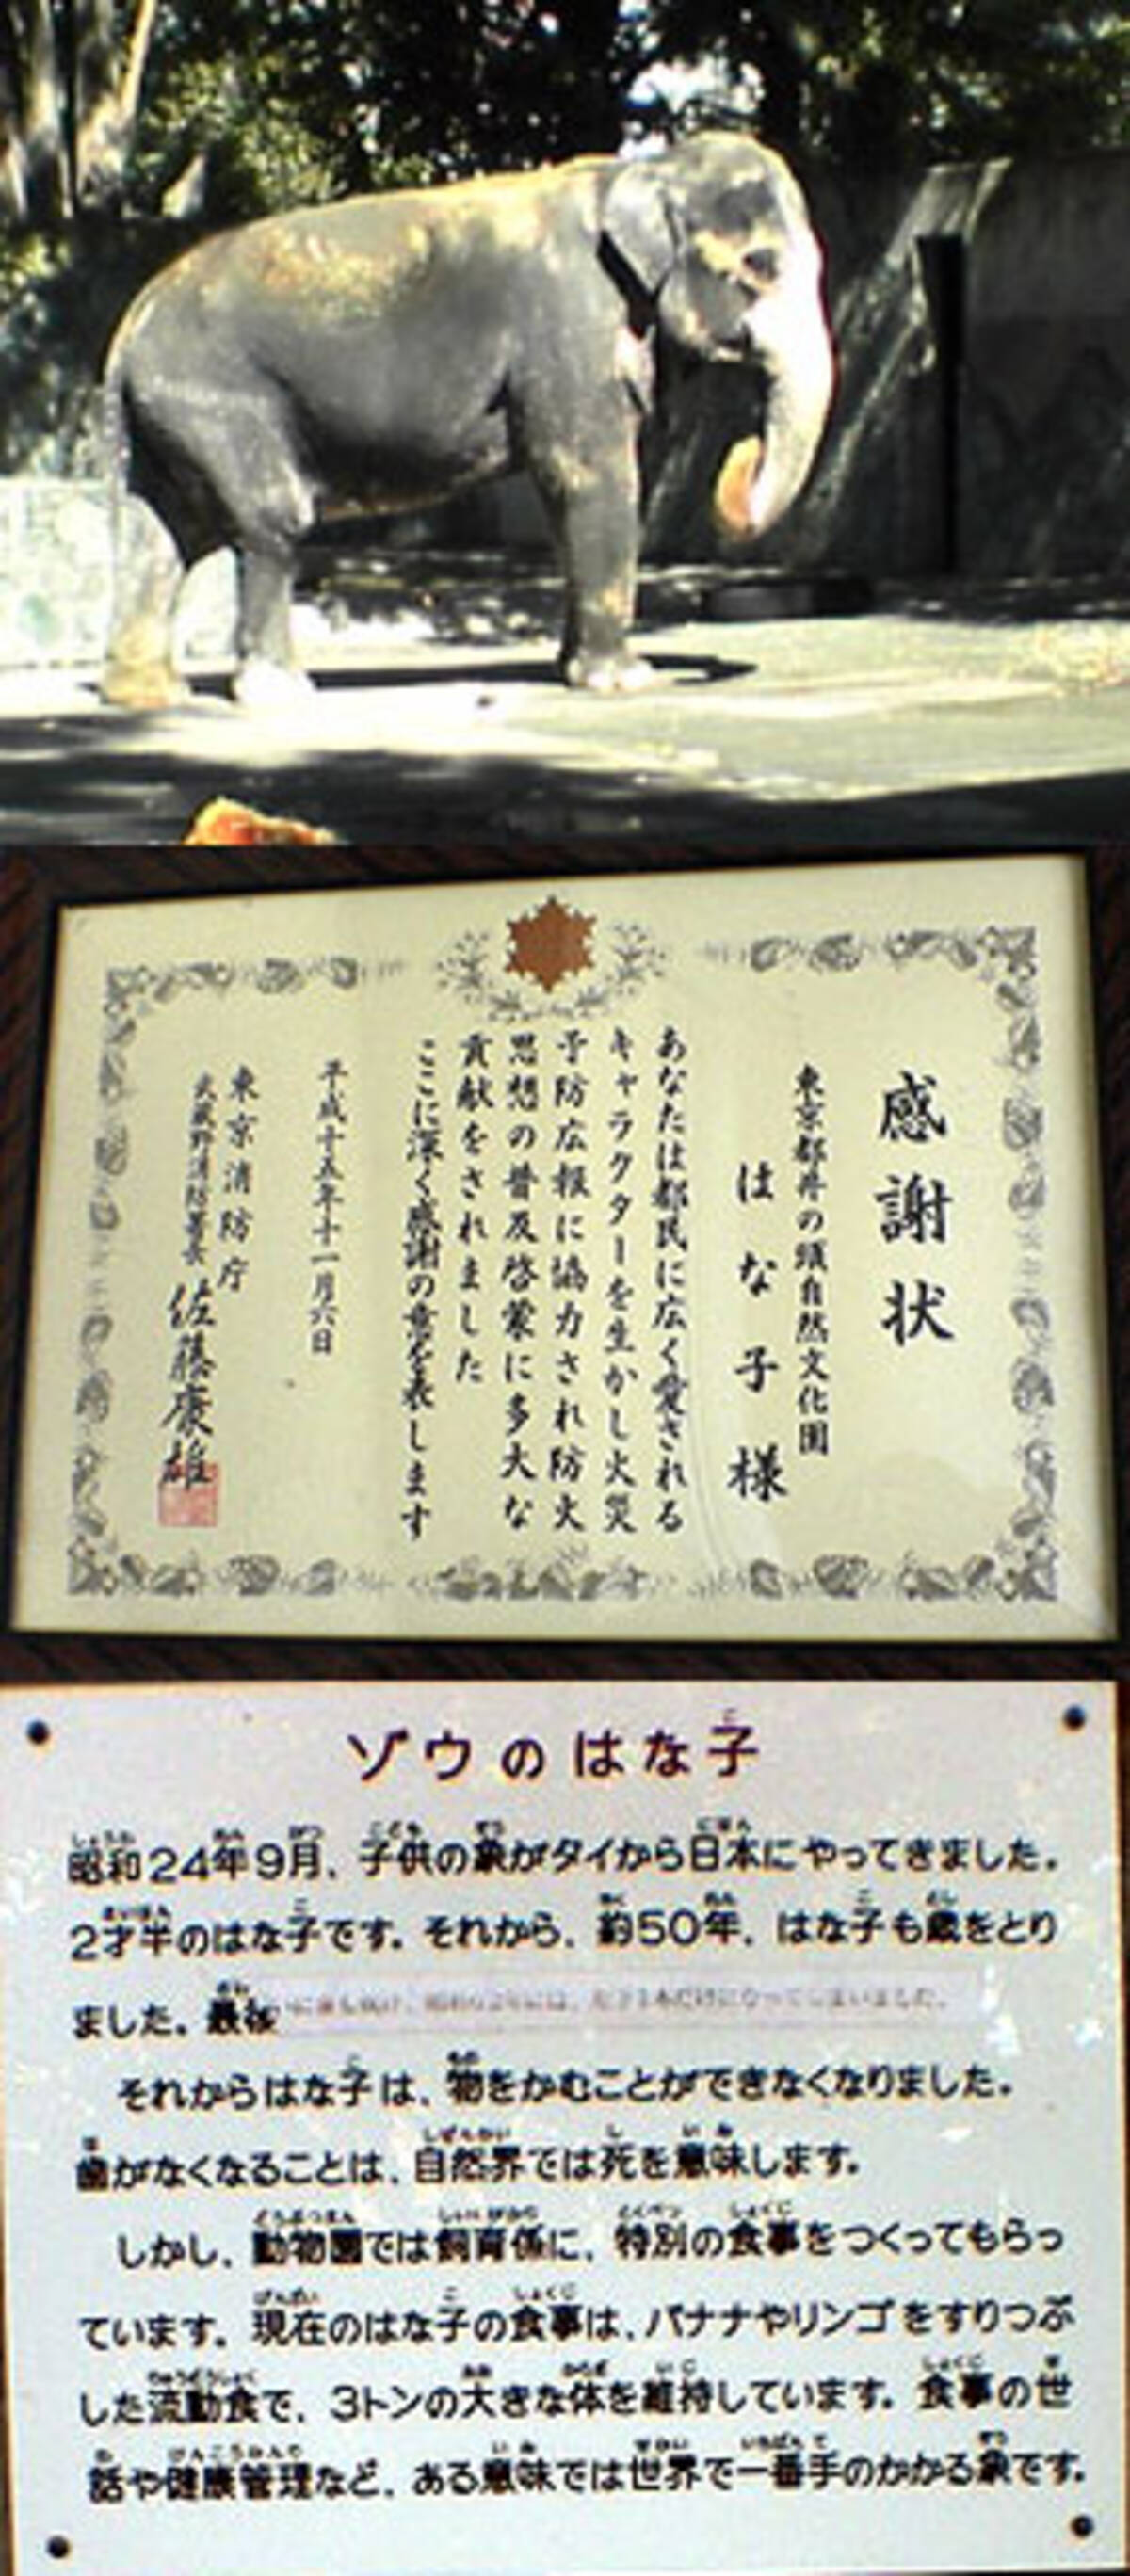 感謝状
東京都井の頭自然文化園
はな子様
あなたは都民に広く愛される
キャラクターを生かし火災
予防広報に協力され防火
思想の普及啓蒙に多大な
貢献をされました
ここに深く感謝の意を表します
平成十五年十一月六日
東京消防庁
武蔵野消防署長 佐藤康雄
ゾウのはな子
昭和24年9月、子供の象がタイから日本にやってきました。
2才半のはな子です。それから、約50年、はな子も歳をとり
ました。最後に歯も抜け、昭和62年には、左下1本だけになってしまいました。
それからはな子は、物をかむことができなくなりました。
歯がなくなることは、自然界では死を意味します。
しかし、動物園では飼育係に、特別の食事をつくってもらっ
ています。現在のはな子の食事は、バナナやリンゴをすりつぶ
した流動食で、3トンの大きな体を維持しています。食事の世
話や健康管理など、ある意味では世界で一番手のかかる象です。